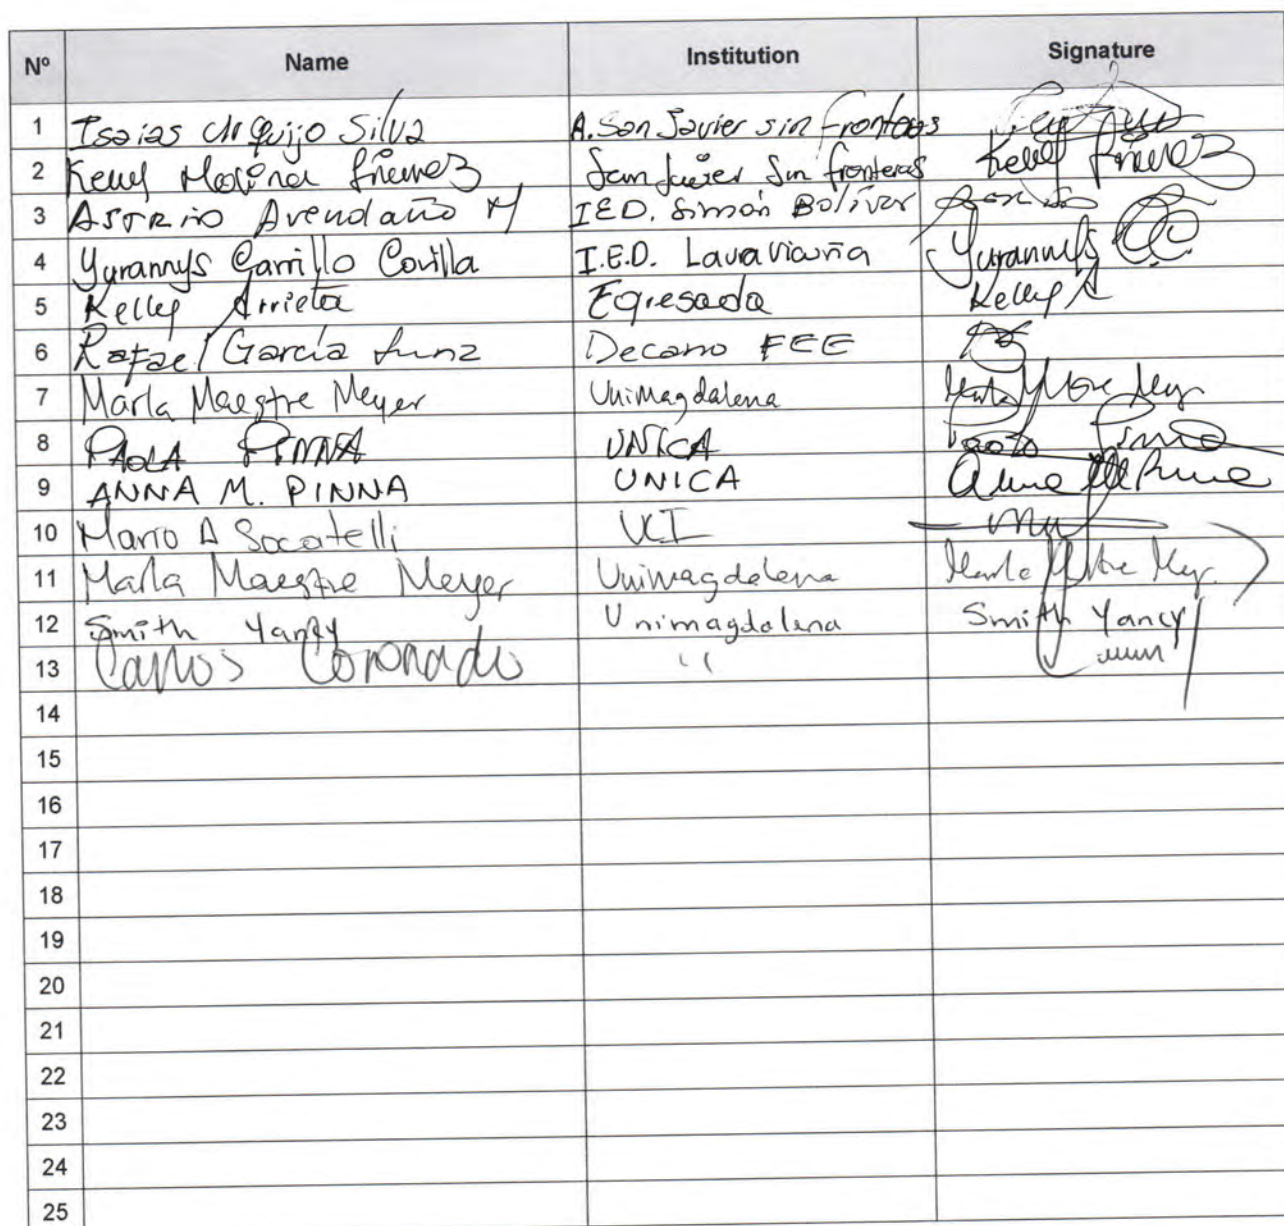 Nº Name Institution Signature
1 Isaias Urquijo Silva A. San Javier sin fronteras
2 Kelly Medina Jimenez San Javier Sin fronteras Kelly Jimenez
3 ASTRID Avendaño M IED. Simón Bolívar
4 Yurannys Carrillo Covilla I.E.D. Laura Vicuña Yurannys
5 Kelley Arrieta Egresada Kelley A
6 Rafael García Luna Decano FEE
7 Marla Maestre Meyer Unimagdalena Marla Mtre Mey
8 PAOLA PINNA UNICA Paola Pinna
9 ANNA M. PINNA UNICA Anna M Pinna
10 Mario A Socatelli UCI
11 Marla Maestre Meyer Unimagdalena Marla Mtre Mey.
12 Smith Yancy Unimagdalena Smith Yancy
13 Carlos Coronado "
14
15
16
17
18
19
20
21
22
23
24
25